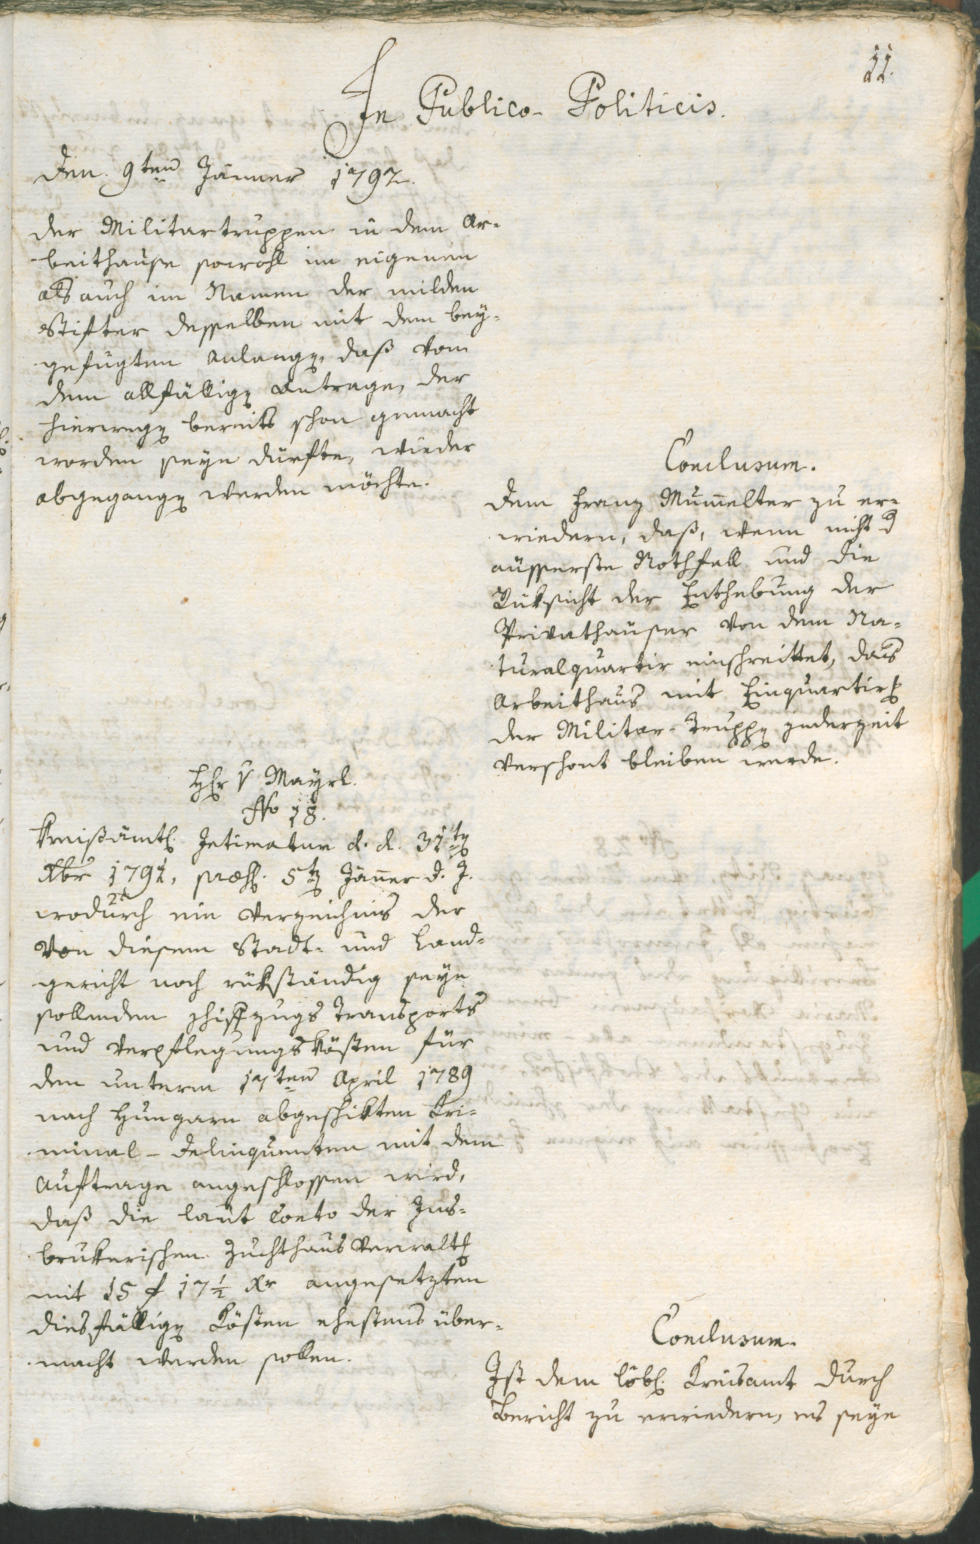 11.
In Publico-Politicis.
Den 9ten Jänner 1792.
der Militartruppen in dem Ar-
beithause sowohl im eigenen
als auch im Namen der milden
Stifter desselben mit dem bey-
gefügten Anlangen, daß vom
dem allfällig Antrage, der
hierwegen bereits schon gemacht
worden seyn dürfte, wieder
abgegangen werden möchte.
Conclusum.
Dem Franz Mumelter zu er-
wiedern, daß, wenn nicht d
äusserste Nothfall und die
Rüksicht der Enthebung der
Privathäuser von dem Na-
turalquartir einschreittet, das
Arbeithaus mit Einquartir
der Militar-Truppen jederzeit
verschont bleiben werde.
H: v Mayrl.
No 18.
Kreisämtl. Intimatum d. d. 31ten
Xbr 1791, præs. 5ten Jäner d. J.
wodurch ein Verzeichnis der
von diesem Stadt- und Land-
gericht noch rükständig seyn
sollenden Schiffzugs Transports
und Verpflegungskösten für
den unterm 17ten April 1789
nach Hungarn abgeschikten Kri-
minal-Delinquenten mit dem
Auftrage angeschlossen wird,
daß die laut Conto der Ins-
brukerischen Zuchthausverwalt
mit 15 f 17½ Xr angesetzten
diesfällig Kösten ehestens über-
macht werden sollen.
Conclusum.
Ist dem löbl. Kreisamt durch
Bericht zu erwiedern, es seye